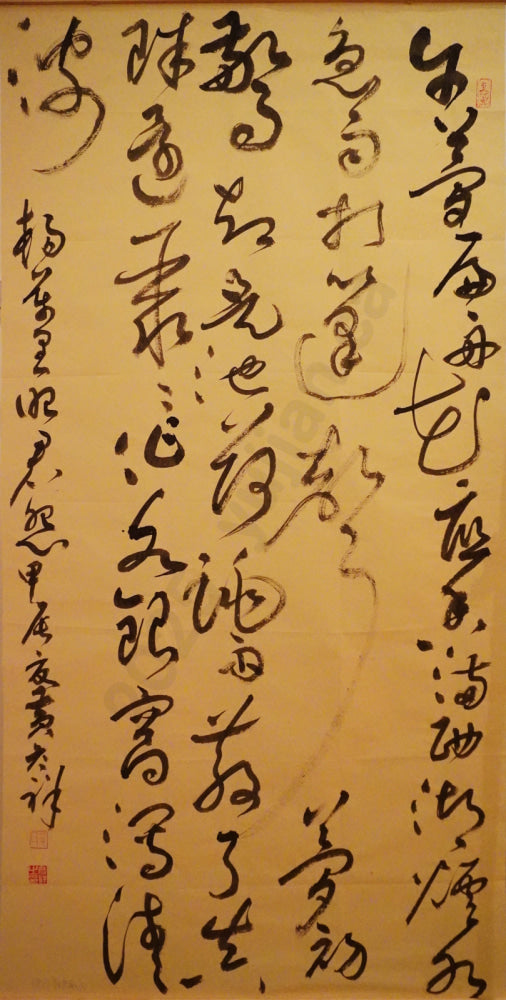 午夢扁舟花底香滿西湖煙水
急雨打篷聲夢初
驚却是池荷跳雨散了真
珠還聚々作水銀窩瀉清
波
楊萬里昭君怨甲辰夏黄祥